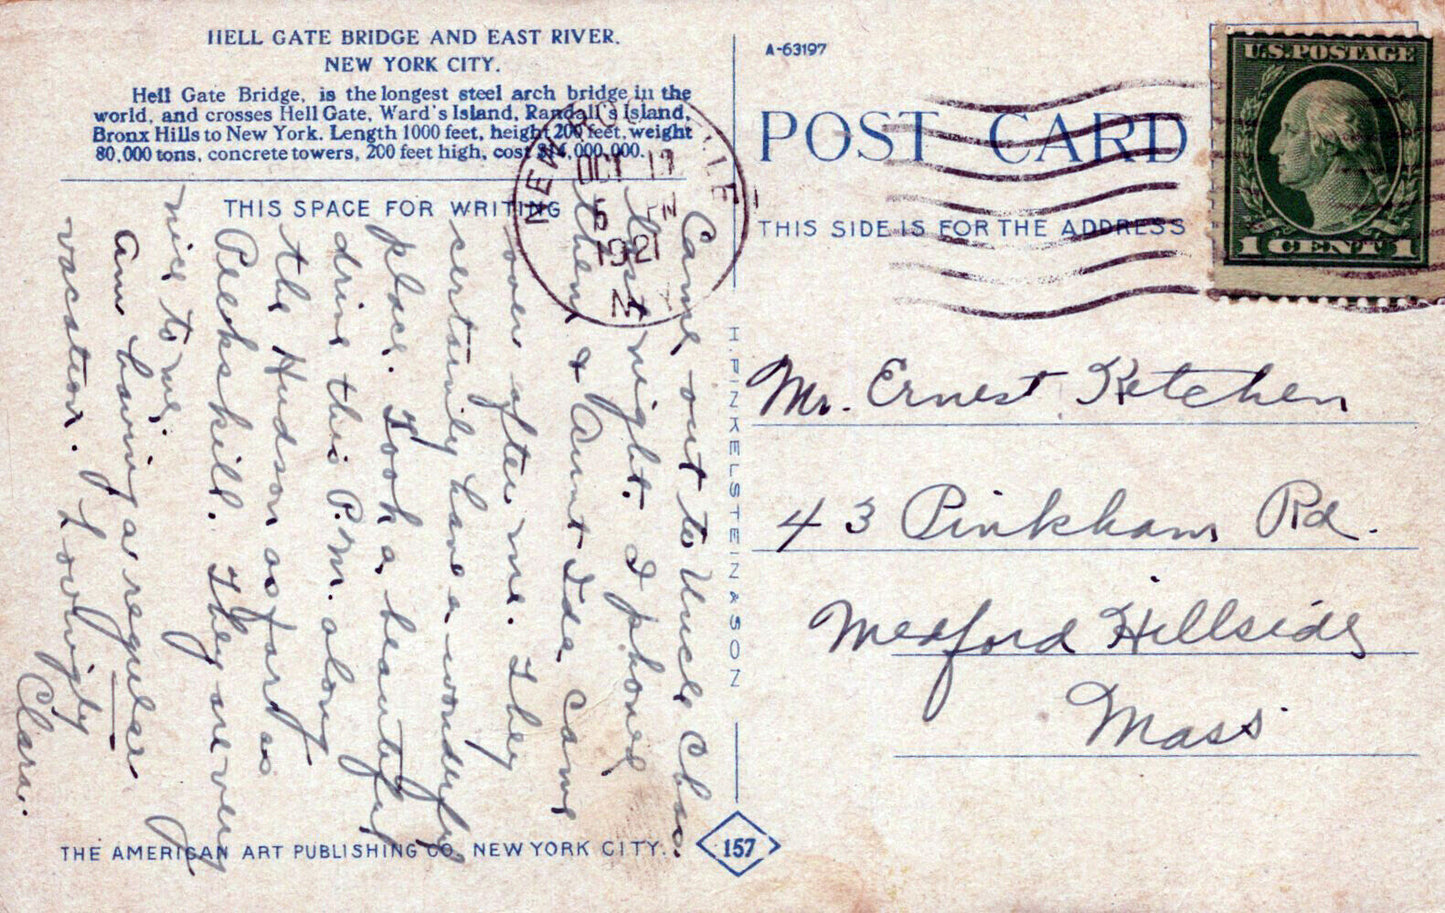 HELL GATE BRIDGE AND EAST RIVER.
NEW YORK CITY.
Hell Gate Bridge, is the longest steel arch bridge in the
world, and crosses Hell Gate, Ward's Island, Randall's Island,
Bronx Hills to New York. Length 1000 feet, height 200 feet, weight
80,000 tons, concrete towers, 200 feet high, cost $14,000,000.
THIS SPACE FOR WRITING
Came out to Uncle Chas.
last night. I phoned
them & Aunt Ida came
over after me. They
certainly have a wonderful
place. Took a beautiful
drive this P.M. along
the Hudson as far as
Peekskill. They are very
nice to me.
Am having a regular
vacation. Lovingly
Clara.
THE AMERICAN ART PUBLISHING CO. NEW YORK CITY.
H. FINKELSTEIN & SON
157
A-63197
POST CARD
THIS SIDE IS FOR THE ADDRESS
NEW
OCT 17
5 PM
1921
N.Y.
U.S. POSTAGE
1 CENT 1
Mr. Ernest Ketchen
43 Pinkham Rd.
Medford Hillside
Mass